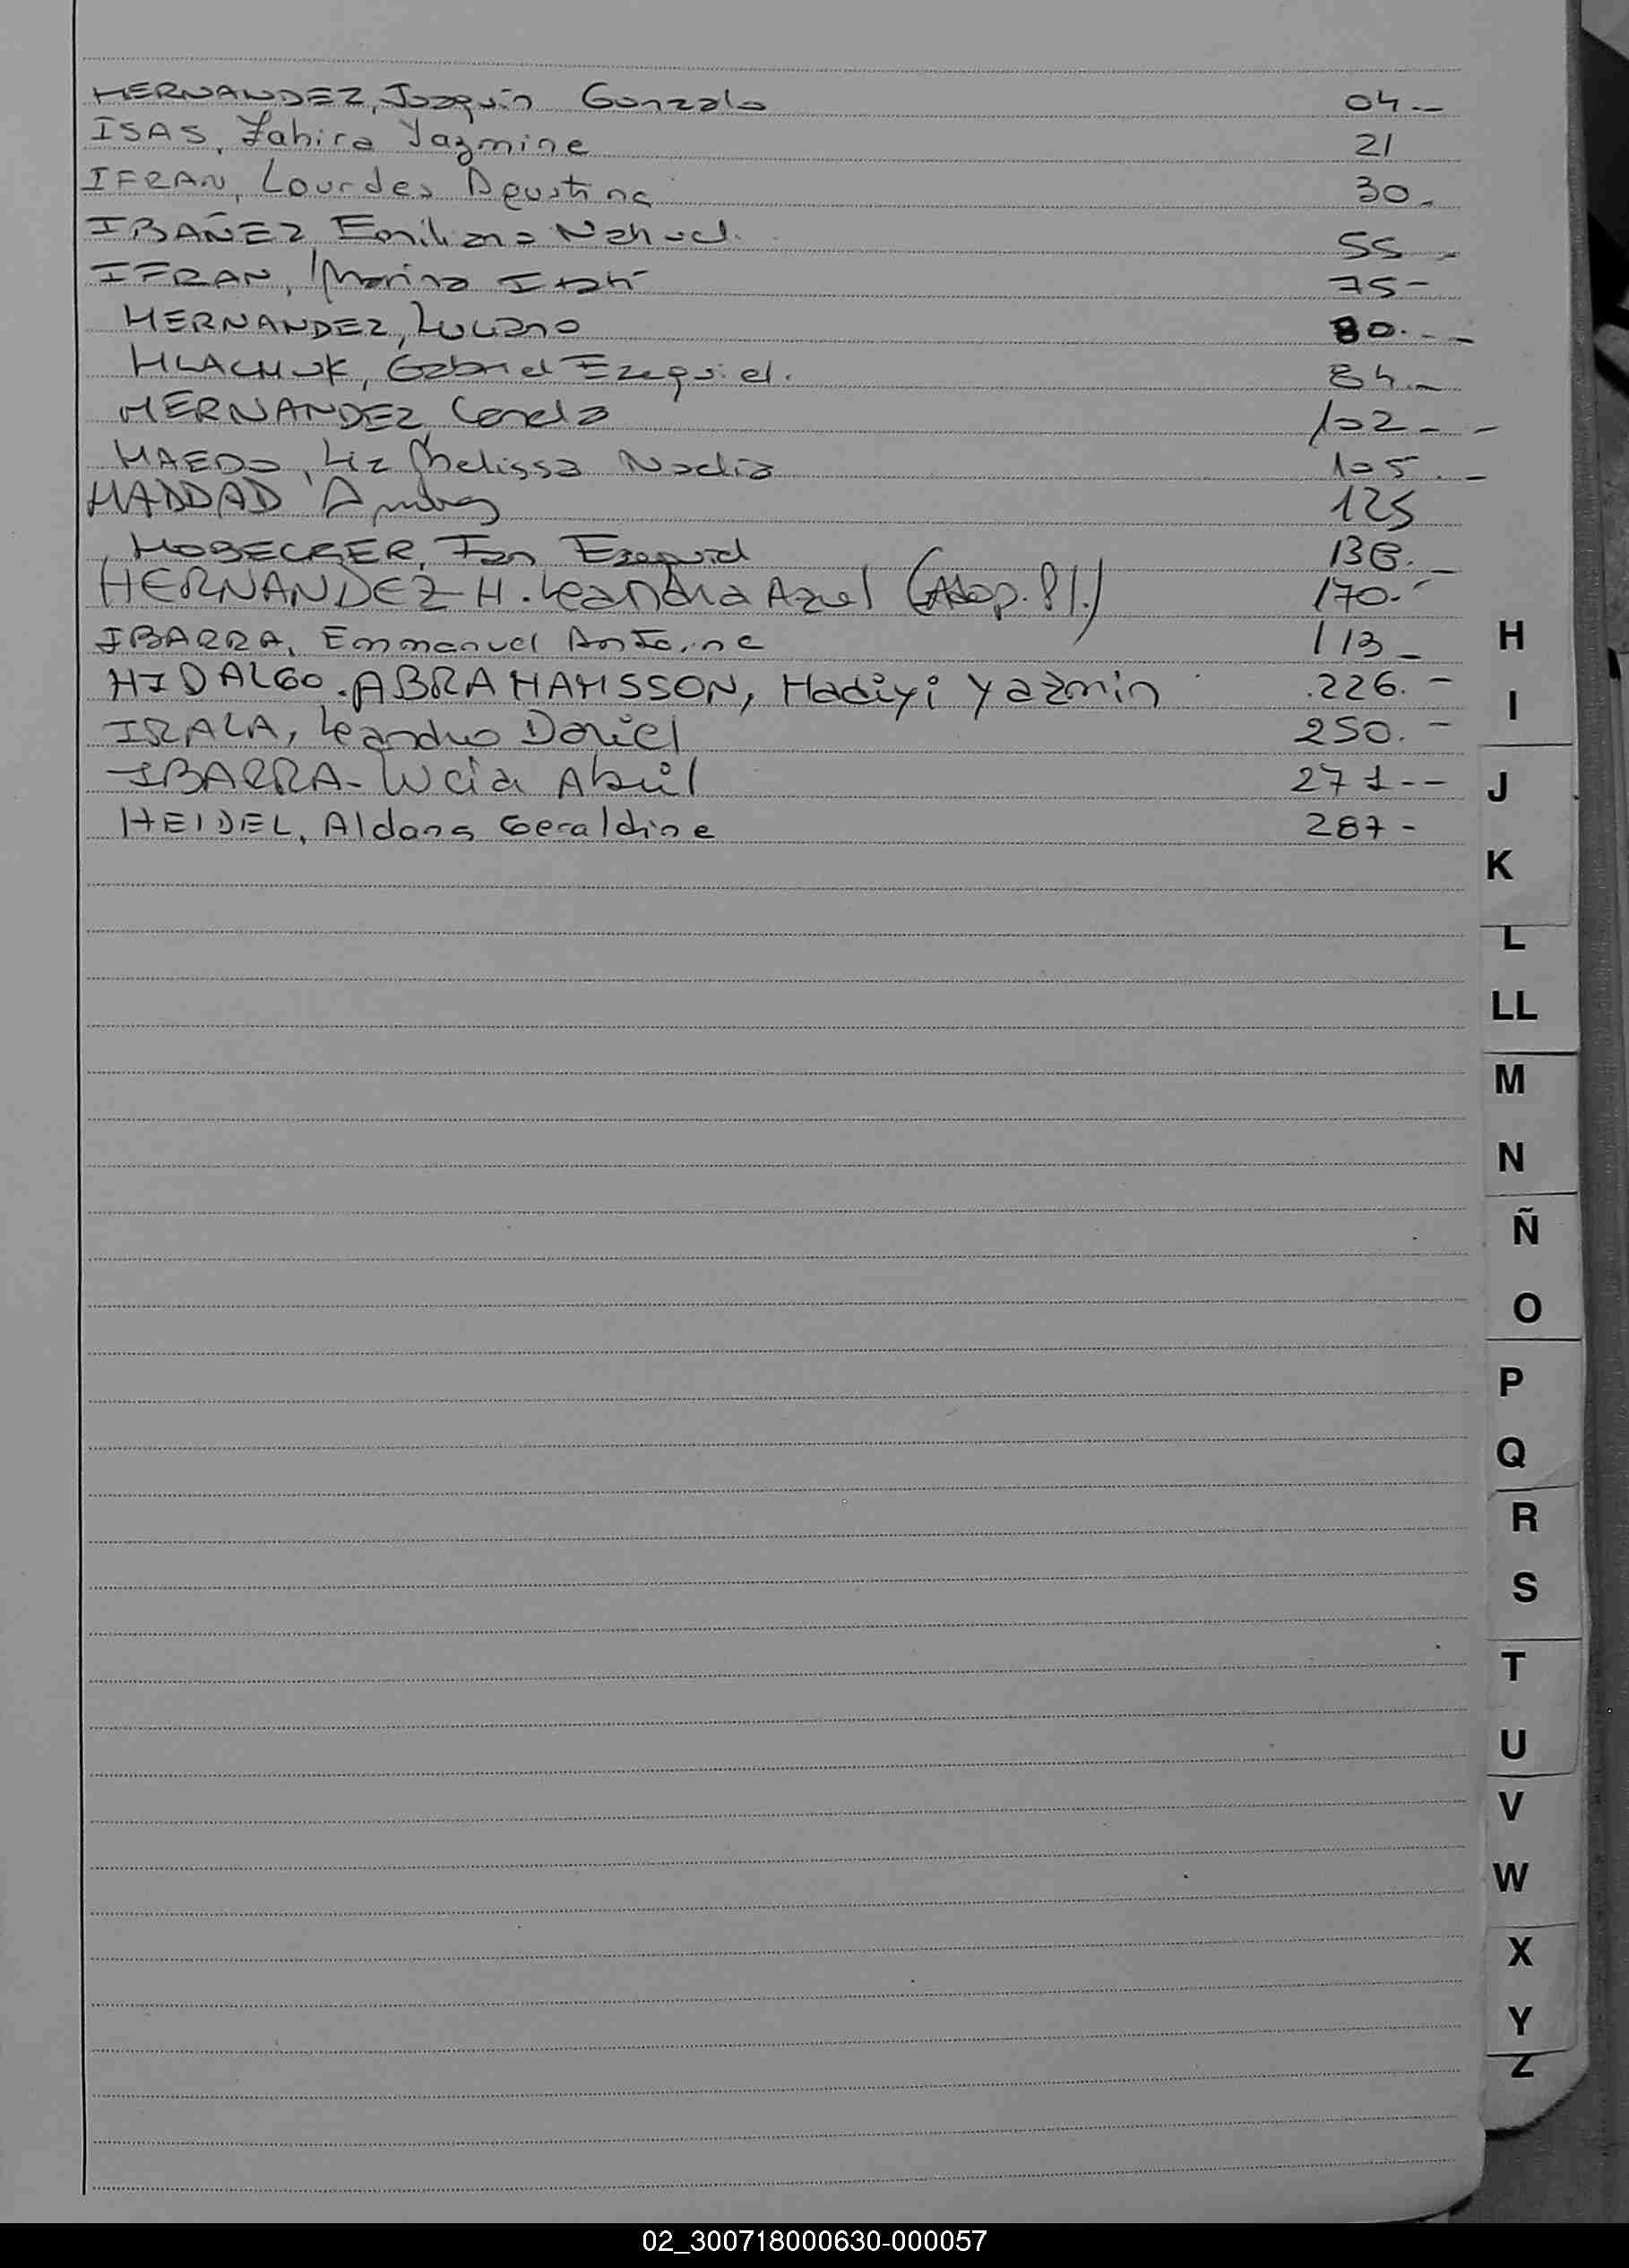 HERNANDEZ, Joaquín Gonzalo 04 --
ISAS, Zahira Yazmine 21
IFRAN, Lourdes Agustina 30.
IBAÑEZ Emiliano Nahuel. 55 -
IFRAN, Marina Itatí 75 -
HERNANDEZ, Luciano 80. - -
HLACHUK, Gabriel Ezequiel. 84. -
HERNANDEZ Candela 102 - -
HAEDO, Liz Melissa Nadia 105. -
HADDAD 125
HOBECKER, Ian Ezequiel 138. -
HERNANDEZ H. Leandra Azul (Adop. Pl.) 170. -
IBARRA, Emmanuel Antoine 113 -
HIDALGO. ABRAHAMSSON, Hadiyi Yazmin .226. -
IRALA, Leandro Daniel 250. -
IBARRA - Lucia Abril 271 --
HEIDEL, Aldana Geraldine 287 -
H
I
J
K
L
LL
M
N
Ñ
O
P
Q
R
S
T
U
V
W
X
Y
Z
02_300718000630-000057